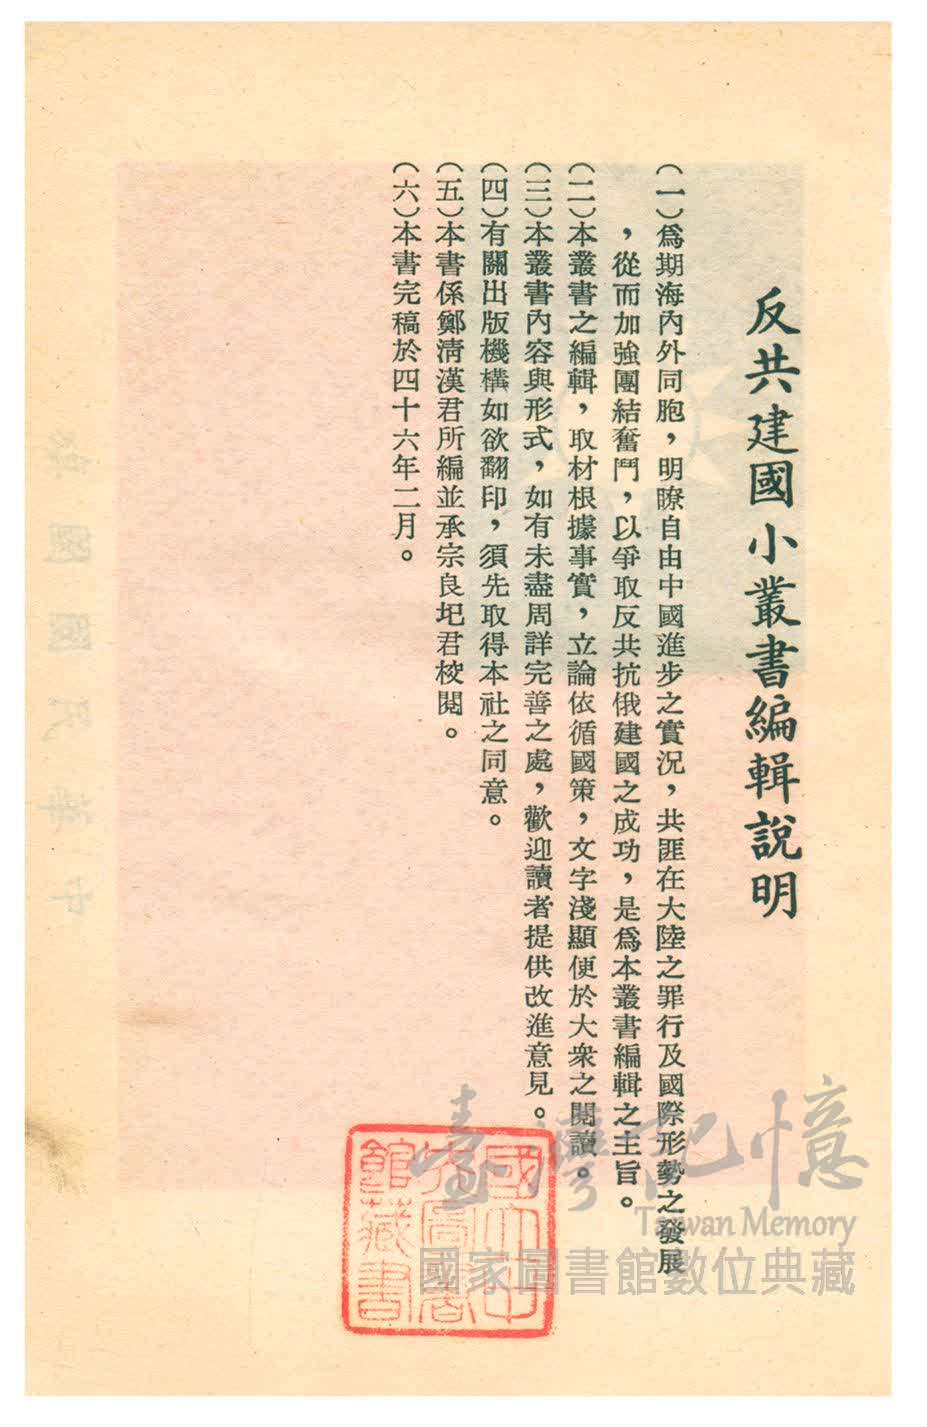 反共建國小叢書編輯說明
(一)爲期海內外同胞，明瞭自由中國進步之實況，共匪在大陸之罪行及國際形勢之發展
，從而加強團結奮鬥，以爭取反共抗俄建國之成功，是爲本叢書編輯之主旨。
(二)本叢書之編輯，取材根據事實，立論依循國策，文字淺顯便於大衆之閱讀。
(三)本叢書內容與形式，如有未盡周詳完善之處，歡迎讀者提供改進意見。
(四)有關出版機構如欲翻印，須先取得本社之同意。
(五)本書係鄭淸漢君所編並承宗良圯君校閱。
(六)本書完稿於四十六年二月。
國立中
央圖書
館藏書
臺灣記憶
Taiwan Memory
國家圖書館數位典藏